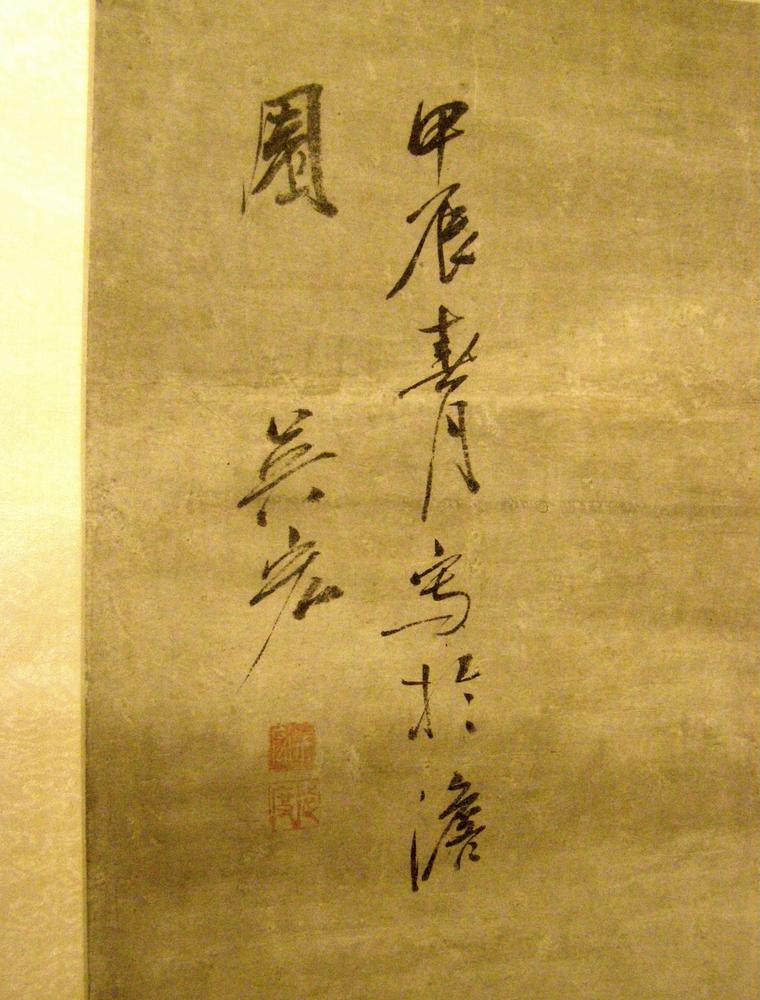 甲辰春月寫於澹
園 吳宏